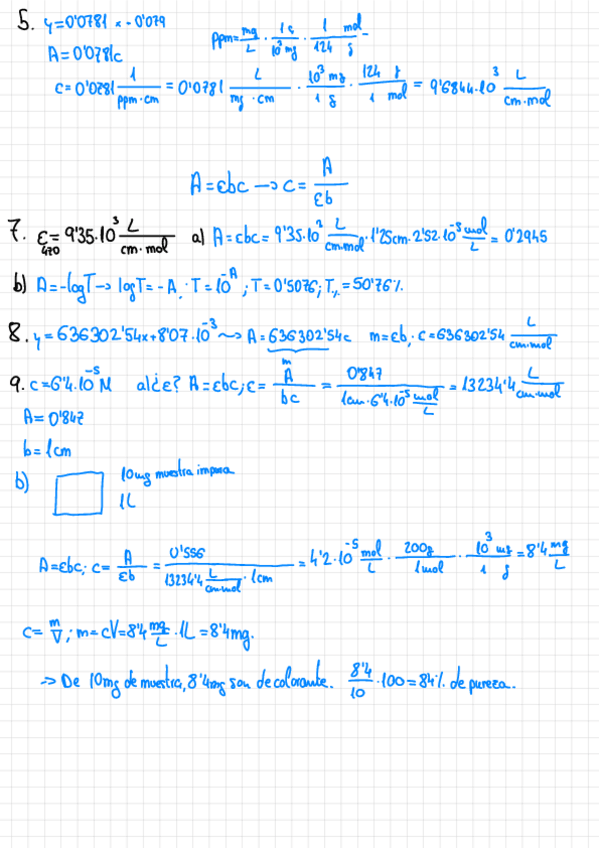 5. y=0'0781 x - 0'079
ppm = mg/L · 1g/10³mg · 1/124 mol/g =
A=0'0781c
c=0'0781 1/ppm·cm = 0'0781 L/mg·cm · 10³ mg/1 g · 124 g/1 mol = 9'6844·10³ L/cm·mol
A=εbc → c= A/εb
7. ε₄₇₀=9'35·10³ L/cm·mol a) A=εbc= 9'35·10³ L/cm·mol · 1'25cm · 2'52·10⁻⁵ mol/L = 0'2945
b) A=-logT → logT=-A; T=10⁻ᴬ; T=0'5076; T%=50'76%.
8. y=636302'54x+8'07·10⁻³ ⇝ A=636302'54c m=εb; c=636302'54 L/cm·mol
m
9. c=6'4·10⁻⁵ M a) ¿ε? A=εbc; ε= A/bc = 0'847/1cm·6'4·10⁻⁵ mol/L = 13234'4 L/cm·mol
A=0'847
b=1cm
b) 10mg muestra impura
1L
A=εbc; c= A/εb = 0'556/13234'4 L/cm·mol · 1cm = 4'2·10⁻⁵ mol/L · 200g/1mol · 10³ mg/1 g = 8'4 mg/L
c= m/V; m=cV=8'4 mg/L · 1L = 8'4mg.
⇒ De 10mg de muestra, 8'4mg son de colorante. 8'4/10 · 100=84% de pureza.